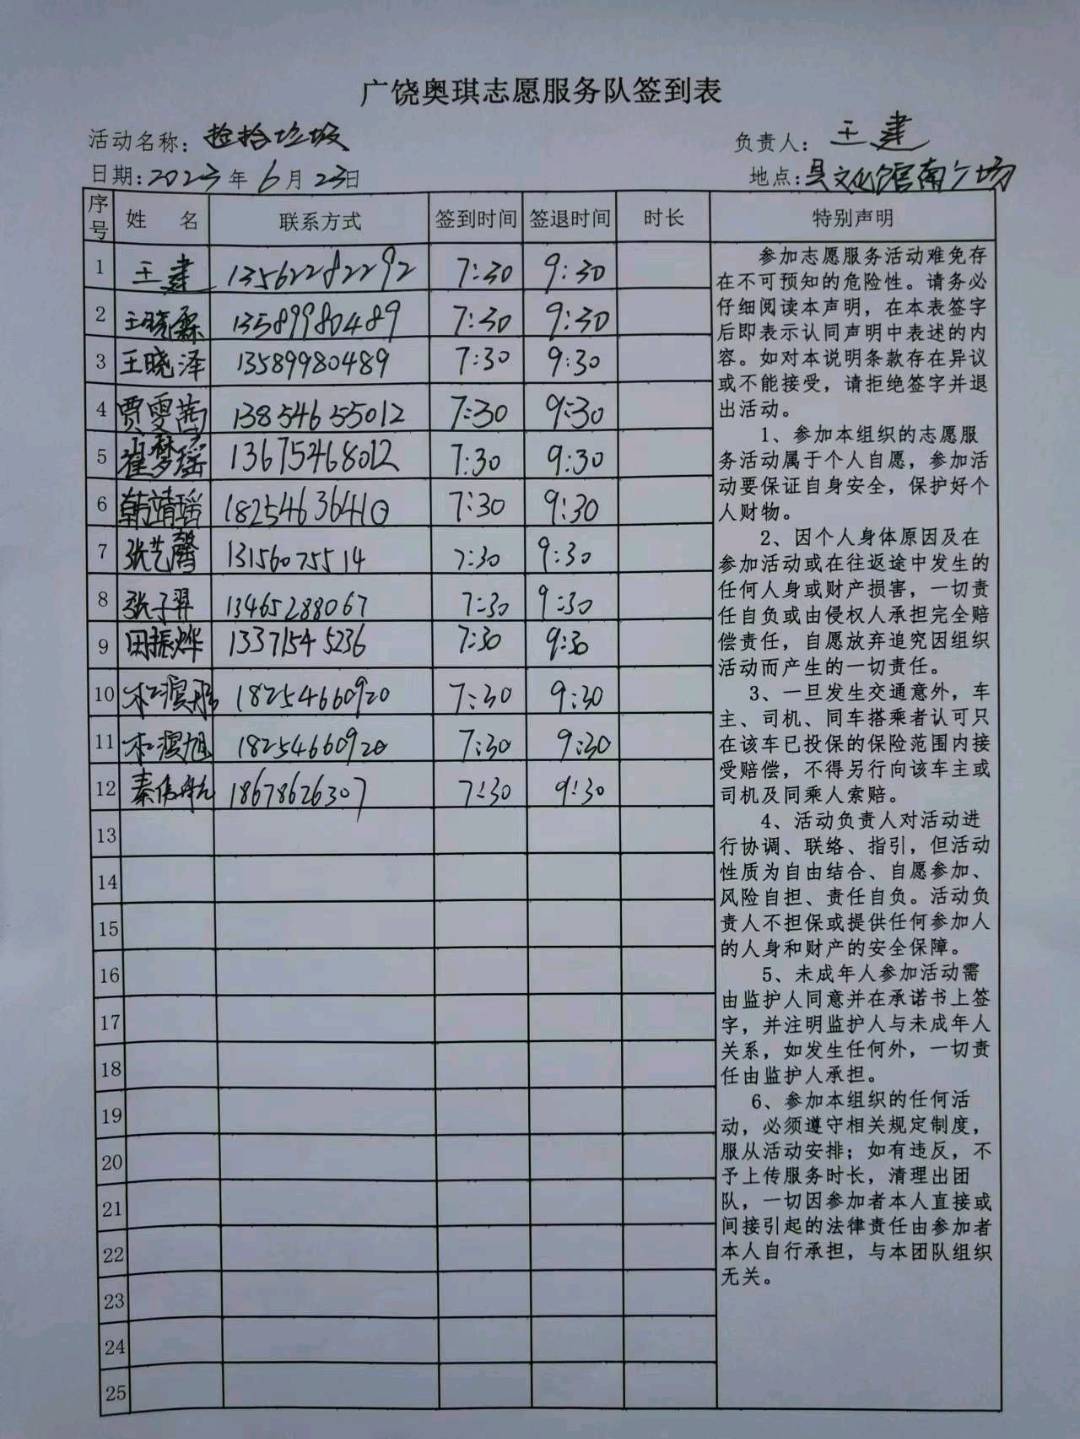 广饶奥琪志愿服务队签到表
活动名称：捡拾垃圾 负责人：王建
日期：2023年6月23日 地点：县文化馆南广场
序号 姓 名 联系方式 签到时间 签退时间 时长 特别声明
1 王建 13562282292 7:30 9:30
2 王晓霖 13589980489 7:30 9:30
3 王晓泽 13589980489 7:30 9:30
4 贾雯茜 13854655012 7:30 9:30
5 崔梦瑶 13675468012 7:30 9:30
6 韩靖瑶 18254636410 7:30 9:30
7 张艺馨 13156075514 7:30 9:30
8 张子羿 13465288067 7:30 9:30
9 田振烨 13371545236 7:30 9:30
10 18254660920 7:30 9:30
11 18254660920 7:30 9:30
12 秦伟航 18678626307 7:30 9:30
13
14
15
16
17
18
19
20
21
22
23
24
25
参加志愿服务活动难免存
在不可预知的危险性。请务必
仔细阅读本声明，在本表签字
后即表示认同声明中表述的内
容。如对本说明条款存在异议
或不能接受，请拒绝签字并退
出活动。
1、参加本组织的志愿服
务活动属于个人自愿，参加活
动要保证自身安全，保护好个
人财物。
2、因个人身体原因及在
参加活动或在往返途中发生的
任何人身或财产损害，一切责
任自负或由侵权人承担完全赔
偿责任，自愿放弃追究因组织
活动而产生的一切责任。
3、一旦发生交通意外，车
主、司机、同车搭乘者认可只
在该车已投保的保险范围内接
受赔偿，不得另行向该车主或
司机及同乘人索赔。
4、活动负责人对活动进
行协调、联络、指引，但活动
性质为自由结合、自愿参加、
风险自担、责任自负。活动负
责人不担保或提供任何参加人
的人身和财产的安全保障。
5、未成年人参加活动需
由监护人同意并在承诺书上签
字，并注明监护人与未成年人
关系，如发生任何外，一切责
任由监护人承担。
6、参加本组织的任何活
动，必须遵守相关规定制度，
服从活动安排；如有违反，不
予上传服务时长，清理出团
队，一切因参加者本人直接或
间接引起的法律责任由参加者
本人自行承担，与本团队组织
无关。